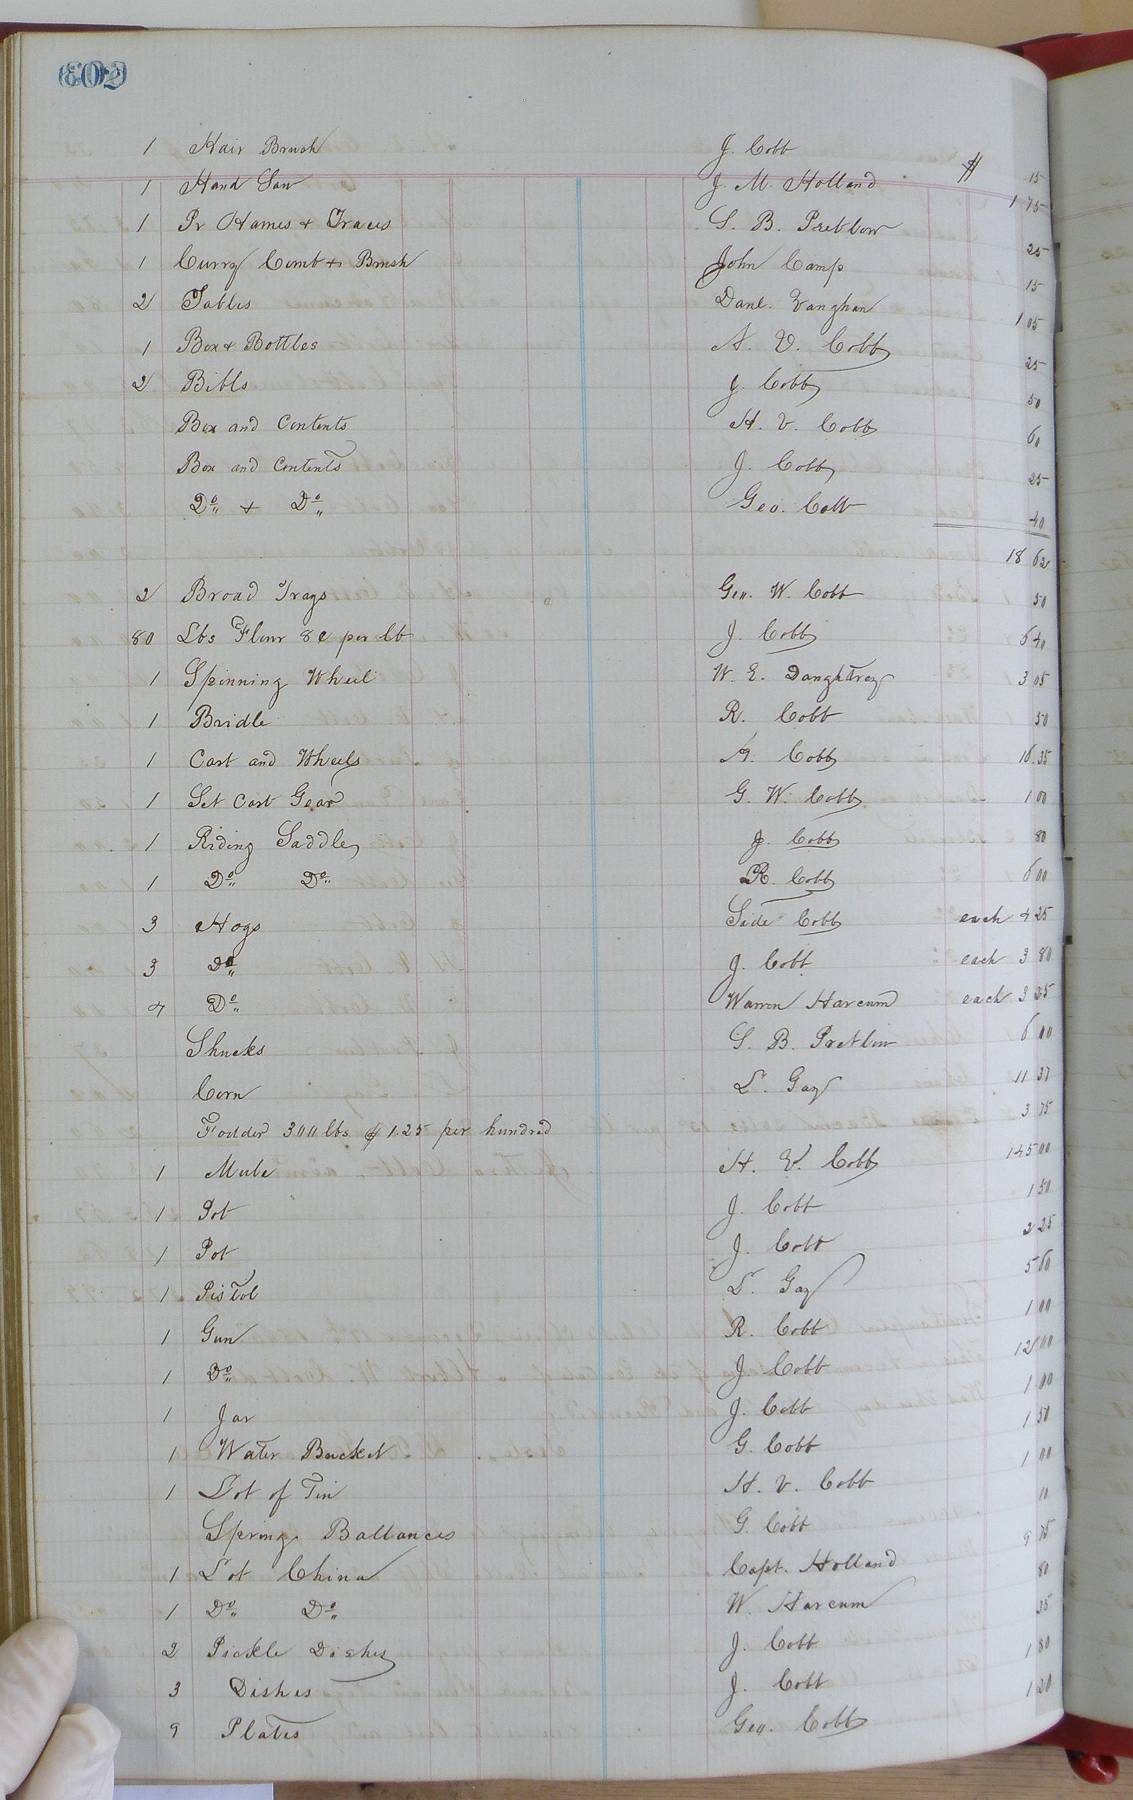 602
1 Hair Brush J. Cobb $ 15
1 Hand Saw J. M. Holland 1 75
1 Pr Hames & Traces S. B. Pretlow 25
1 Curry Comb & Brush John Camp 15
2 Tables Danl. Vaughan 1 05
1 Box & Bottles A. V. Cobb 25
2 Bibls J. Cobb 50
Box and Contents H. V. Cobb 60
Box and Contents J. Cobb 25
Do & Do Geo. Cobb 40
18 62
2 Broad Trays Geo. W. Cobb 50
80 Lbs Flour 8c per lb J. Cobb 6 40
1 Spinning Wheel W. E. Daughtrey 3 05
1 Bridle R. Cobb 50
1 Cart and Wheels A. Cobb 16.35
1 Set Cart Gear G. W. Cobb 1 00
1 Riding Saddle J. Cobb 80
1 Do Do R. Cobb 6 00
3 Hogs Side Cobb each 4 25
3 Do J. Cobb each 3 80
Do Warren Harcum each 3 35
Shucks S. B. Pretlow 6 00
Corn L. Gay 11 37
Fodder 300 lbs $1.25 per hundred 3 75
1 Mule H. V. Cobb 145 00
1 Pot J. Cobb 1 50
1 Pot J. Cobb 2 25
1 Pistol L. Gay 5 60
1 Gun R. Cobb 1 00
1 Do J. Cobb 12 00
1 Jar J. Cobb 1 00
1 Water Bucket G. Cobb 1 50
1 Lot of Tin H. V. Cobb 1 00
Spring Ballances G. Cobb 10
1 Lot China Capt. Holland 9 75
1 Do Do W. Harcum 80
2 Pickle Dishes J. Cobb 35
3 Dishes J. Cobb 1 80
9 Plates Geo. Cobb 1 20